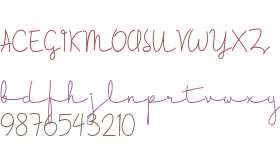 ACEGIKMOQSUVWYXZ
bdfhjlnprtvwxy
9876543210